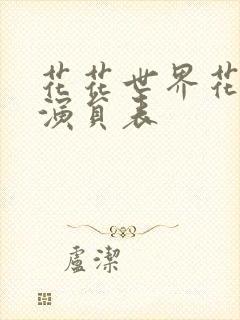 花花世界花
演員表
盧潔